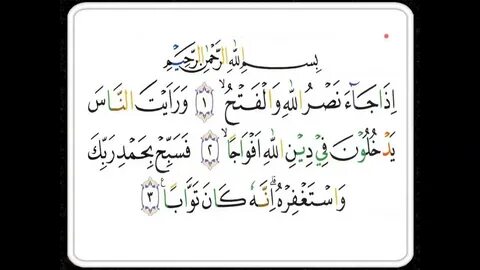 بِسْمِ اللهِ الرَّحْمٰنِ الرَّحِيْمِ
اِذَا جَآءَ نَصْرُ اللهِ وَالْفَتْحُ ۙ ١ وَرَاَيْتَ النَّاسَ
يَدْخُلُوْنَ فِيْ دِيْنِ اللهِ اَفْوَاجًا ۙ ٢ فَسَبِّحْ بِحَمْدِ رَبِّكَ
وَاسْتَغْفِرْهُ ۗ اِنَّهٗ كَانَ تَوَّابًا ࣖ ٣